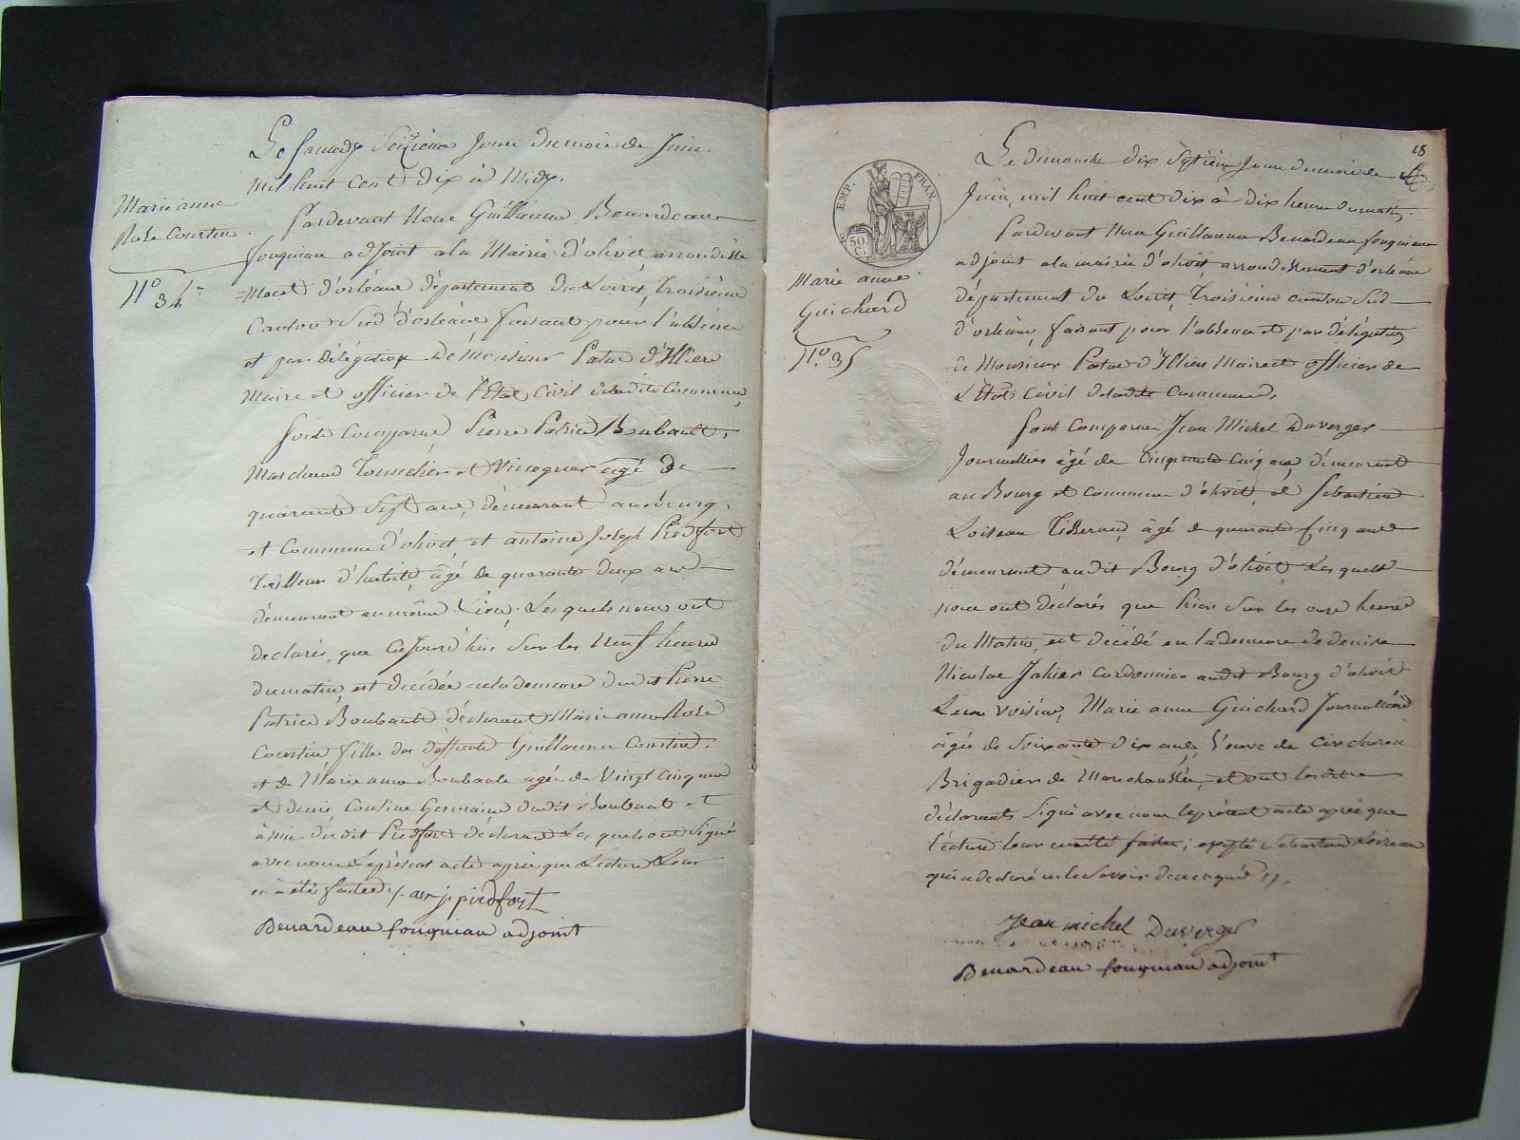 Le samedy Seizième Jour du mois de Juin
mil huit cent dix à Midy.
Marie anne
Rose Courtin.
N° 34
Pardevant Nous Guillaume Benardeau
fouquiau adjoint a la Mairie d'olivet arrondisse
=ment d'orléans département du Loiret, troisième
Canton Sud d'orléans faisant pour l'absence
et par délégation de Monsieur Patas d'Illiers
Maire et officier de l'Etat Civil de ladite Commune,
Sont Comparus Pierre Patrice Boubault,
Marchand Tonnelier et Vinaigrier agé de
quarante Sept ans, demeurant au bourg
et Commune d'olivet, et antoine Joseph Piedfort
Tailleur d'habits, agé de quarante deux ans
demeurant au même Lieu. Lesquels nous ont
declarés, que Cejourd'hui Sur les Neuf heures
du matin, est décédée en la demeure dudit Pierre
Patrice Boubault déclarant Marie anne Rose
Courtin fille de deffunts Guillaume Courtin
et de Marie anne Boubault agée de Vingt Cinq ans
et demie Cousine Germaine dudit Boubault et
amie dudit Piedfort declarant Lesquels ont Signé
avec nous le présent acte après que Lecture Leur
en a été faitte./. an j. piedfort
Benardeau fouquiau adjoint
18
EMP. FRAN.
50 C.
Le dimanche dix Septième Jour du mois de
Juin, mil huit cent dix à dix heures du matin.
Marie anne
Guichard
N° 35
Pardevant Nous Guillaume Benardeau fouquiau
adjoint a la mairie d'olivet arrondissement d'orléans
département du Loiret, Troisième canton Sud
d'orléans, faisant pour l'absence et par délégation
de Monsieur Patas d'Illiers Maire et officier de
L'Etat Civil de ladite Commune,
Sont Comparus Jean Michel Duverger
Journallier agé de Cinquante Cinq ans, demeurant
au Bourg et Commune d'olivet, et Sebastien
Loiseau Tisserand, agé de quarante Cinq ans
demeurant audit Bourg d'olivet Lesquels
nous ont déclarés que hier Sur les onze heures
du Matin, est décédé en la demeure de denis
Nicolas Jahier Cordonnier audit Bourg d'olivet
Leur Voisin, Marie anne Guichard Journallière
agée de Soixante dix ans, Veuve de
Brigadier de Marechaussée, et ont les
déclarants Signé avec nous le présent acte après que
lecture leur en a été faitte, excepté Sebastien Loiseau
qui a declaré ne le Savoir de ce enquis ./.
Jean michel Duverger
Benardeau fouquiau adjoint